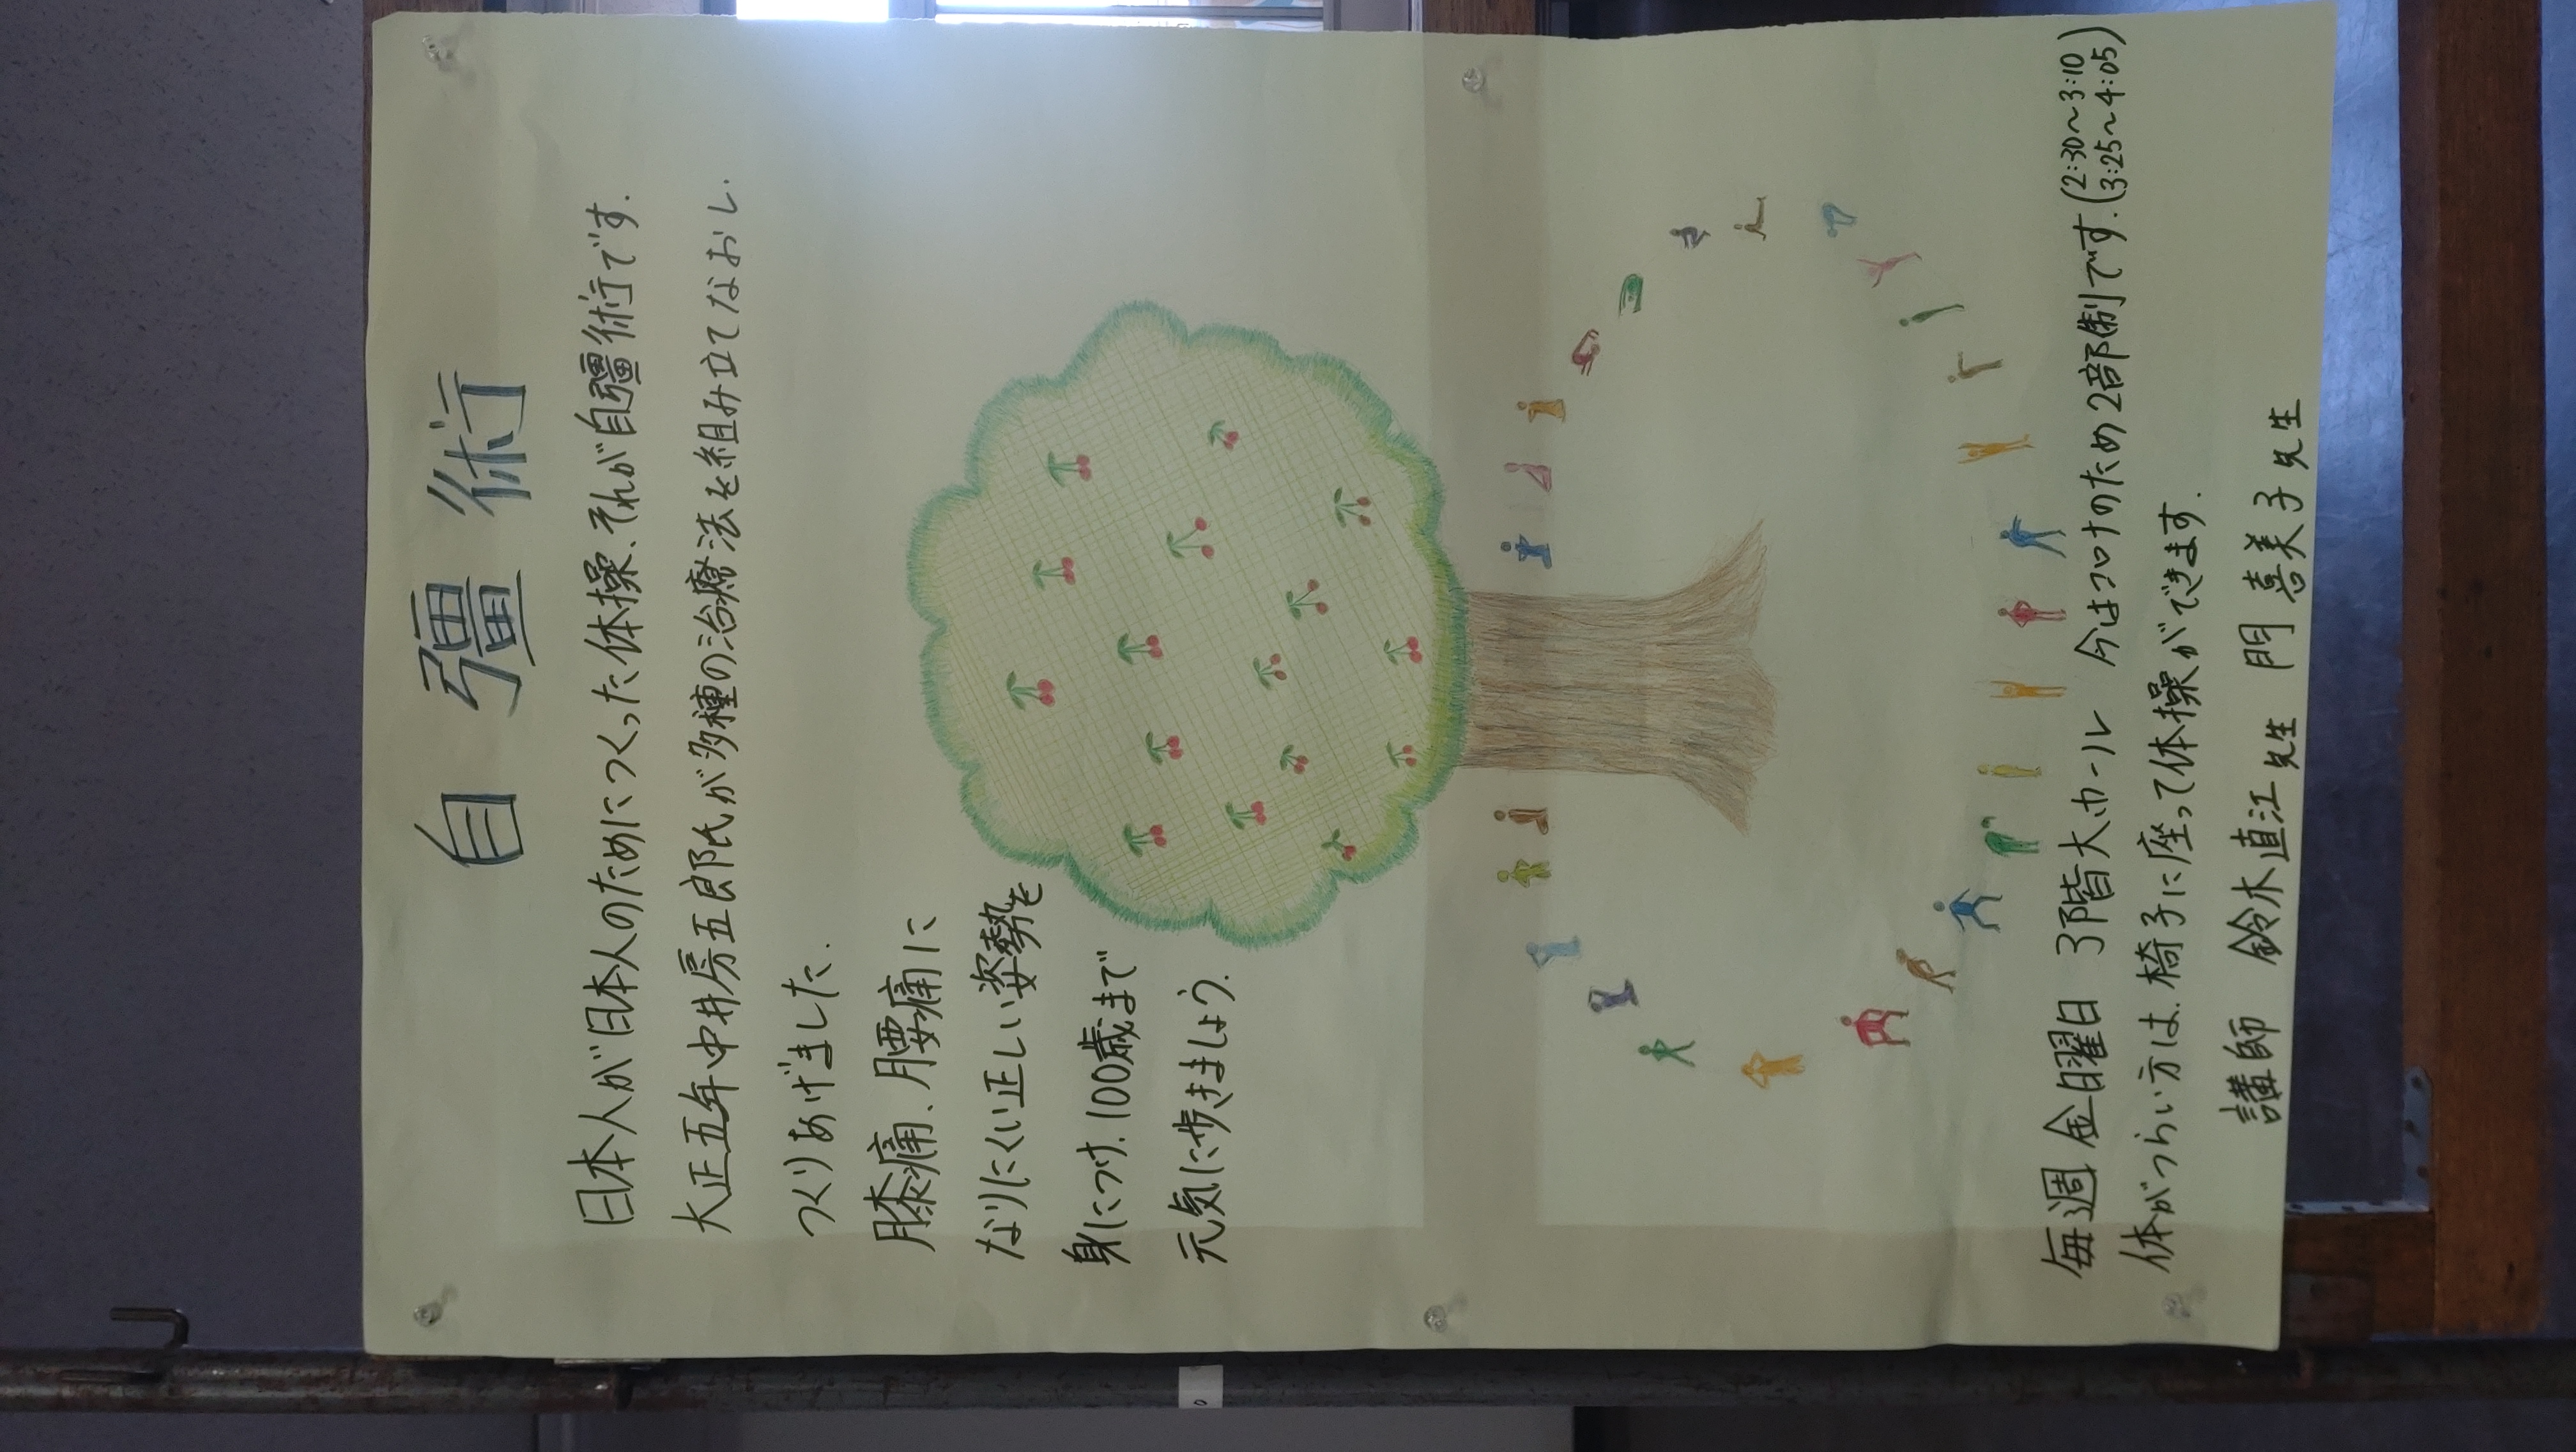 自彊術
日本人が日本人のためにつくった体操、それが自彊術です.
大正五年中井房五郎氏が多種の治療法を組み立てなおし.
つくりあげました.
膝痛、腰痛に
なりにくい正しい姿勢を
身につけ.100歳まで
元気に歩きましょう.
毎週 金曜日 3階大ホール 今はコロナのため2部制です.(2:30〜3:10)
(3:25〜4:05)
体がつらい方は.椅子に座って体操ができます.
講師 鈴木直江先生 門 喜美子先生